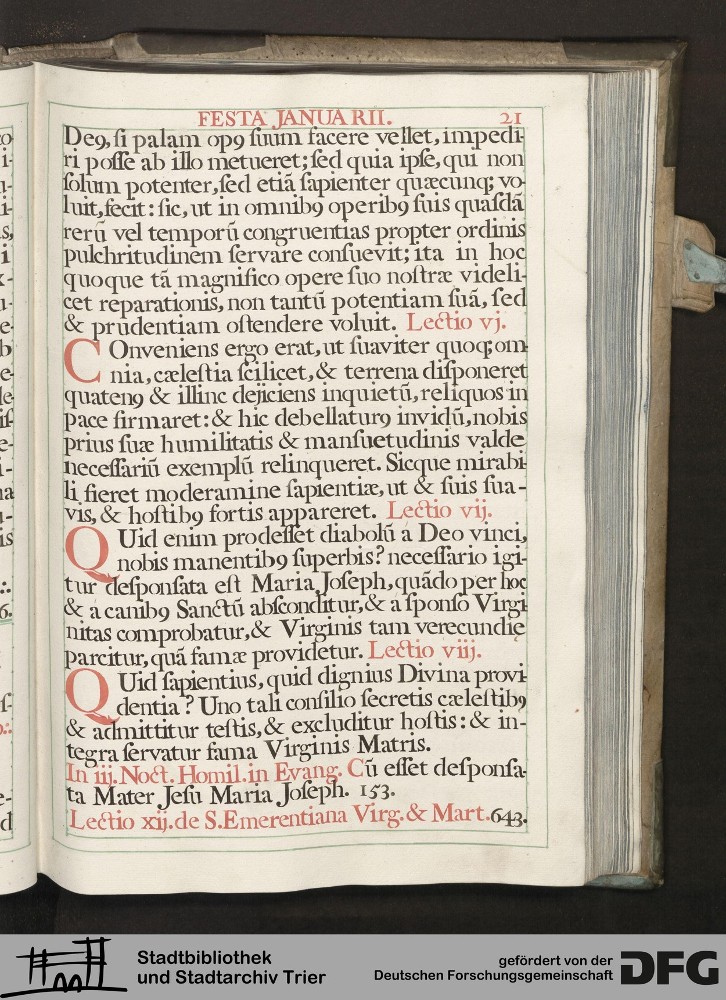 FESTA JANUARII. 21
Deꝰ, ſi palam opꝰ ſuum facere vellet, impedi-
ri poſſe ab illo metueret; ſed quia ipſe, qui non
ſolum potenter, ſed etiã ſapienter quæcunq; vo-
luit, fecit: ſic, ut in omnibꝰ operibꝰ ſuis quaſdã
rerũ vel temporũ congruentias propter ordinis
pulchritudinem ſervare conſuevit; ita in hoc
quoque tã magnifico opere ſuo noſtræ videli-
cet reparationis, non tantũ potentiam ſuã, ſed
& prudentiam oſtendere voluit. Lectio vj.
COnveniens ergo erat, ut ſuaviter quoq; om-
nia, cæleſtia ſcilicet, & terrena diſponeret
quatenꝰ & illinc dejiciens inquietũ, reliquos in
pace firmaret: & hic debellaturꝰ invidũ, nobis
prius ſuæ humilitatis & manſuetudinis valde
neceſſariũ exemplũ relinqueret. Sicque mirabi-
li fieret moderamine ſapientiæ, ut & ſuis ſua-
vis, & hoſtibꝰ fortis appareret. Lectio vij.
QUid enim prodeſſet diabolũ a Deo vinci,
nobis manentibꝰ ſuperbis? neceſſario igi-
tur deſponſata eſt Maria Joſeph, quãdo per hoc
& a canibꝰ Sanctũ abſconditur, & a ſponſo Virgi-
nitas comprobatur, & Virginis tam verecundię
parcitur, quã famæ providetur. Lectio viij.
QUid ſapientius, quid dignius Divina provi-
dentia? Uno tali conſilio ſecretis cæleſtibꝰ
& admittitur teſtis, & excluditur hoſtis: & in-
tegra ſervatur fama Virginis Matris.
In iij. Noct. Homil. in Evang. Cũ eſſet deſponſa-
ta Mater Jeſu Maria Joſeph. 153.
Lectio xij. de S. Emerentiana Virg. & Mart. 643.
Stadtbibliothek
und Stadtarchiv Trier
gefördert von der
Deutschen Forschungsgemeinschaft
DFG